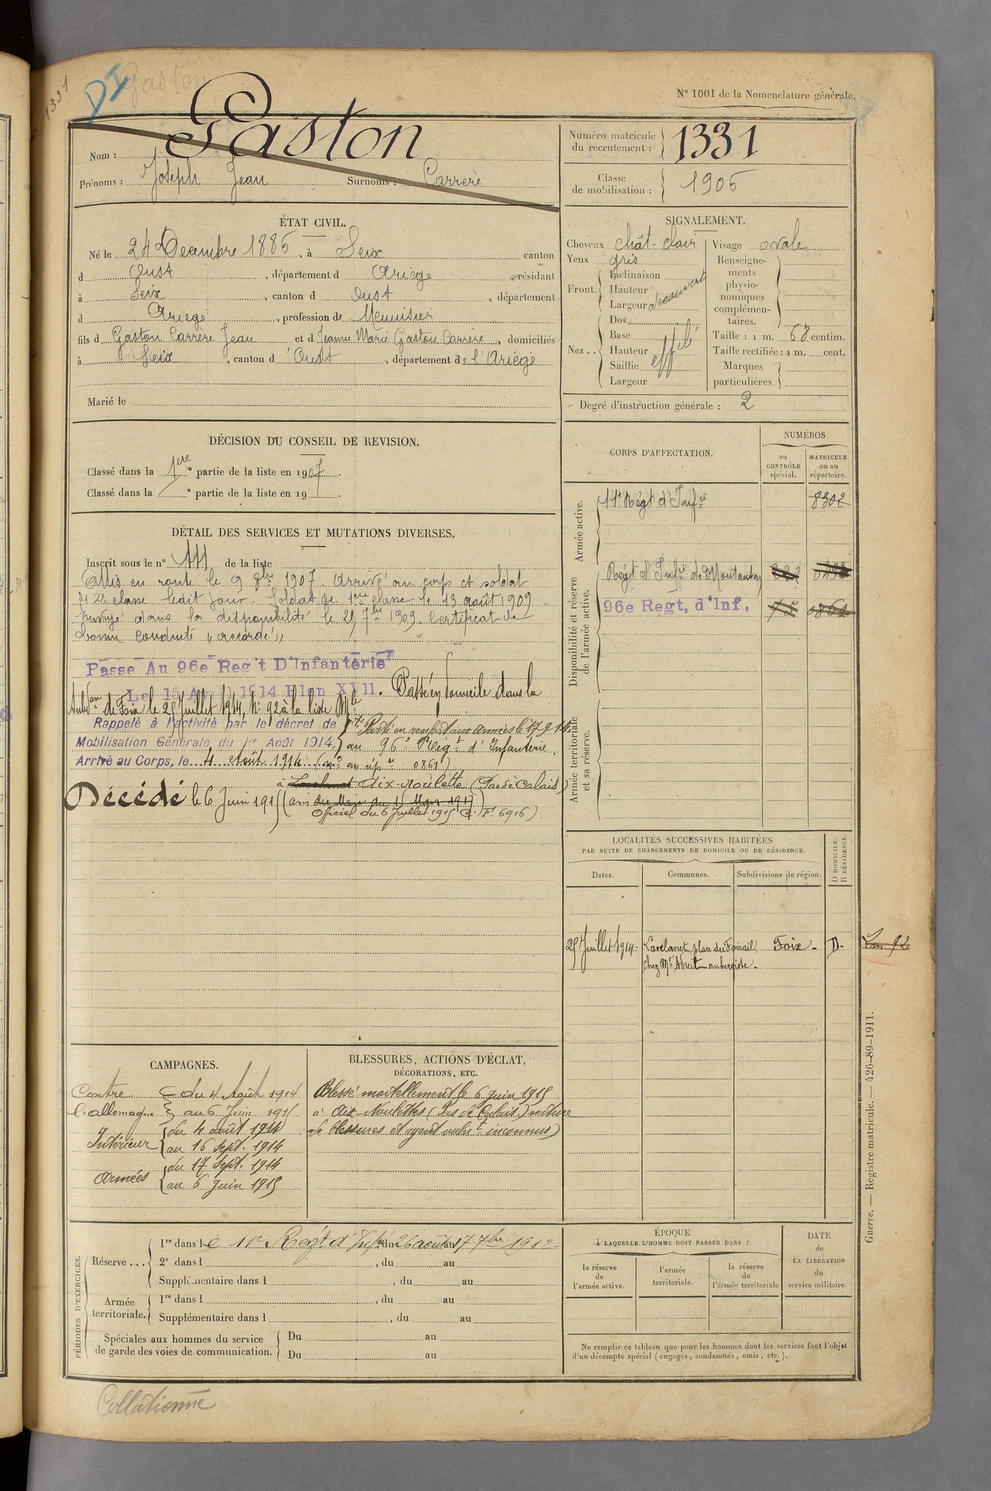 1331
DI
Gaston
N° 1001 de la Nomenclature générale.
Nom : Gaston
Prénoms : Joseph Jean Surnoms : Carrere
Numéro matricule du recrutement : 1331
Classe de mobilisation : 1906
ÉTAT CIVIL.
Né le 24 Decembre 1886, à Seix canton
d Oust, département d Ariège, résidant
à Seix, canton d Oust, département
d Ariege, profession de Menuisier
fils d Gaston Carrere Jean et d Jeanne Marie Gaston Carrère, domiciliés
à Seix, canton d'Oust, département de l'Ariège
Marié le
SIGNALEMENT.
Cheveux chât-clair
Yeux gris
Front. Inclinaison
Hauteur
Largeur découvert
Nez.. Dos
Base
Hauteur
Saillie effilé
Largeur
Visage ovale
Renseignements physionomiques complémentaires.
Taille : 1 m. 68 centim.
Taille rectifiée : 1 m. cent.
Marques particulières.
Degré d'instruction générale : 2
DÉCISION DU CONSEIL DE REVISION.
Classé dans la 1ere partie de la liste en 1907.
Classé dans la " partie de la liste en 19
DÉTAIL DES SERVICES ET MUTATIONS DIVERSES.
Inscrit sous le n° de la liste
Mis en route le 9 8bre 1907. Arrivé au corps et soldat
de 2e classe ledit jour. Soldat de 1ere classe le 13 août 1909
Envoyé dans la disponibilité le 25 7bre 1909. Certificat de
bonne conduite "accordé"
Passé Au 96e Reg't D'Infanterie
Le 15 Avril 1914 Plan XVII. Passé, domicile dans la
de Foix le 25 Juillet 1914, N° 92 à la liste Mle
Rappelé à l'activité par le décret de
Mobilisation Générale du 1er Août 1914,
Parti en renfort aux armées le 17 9 14.
au 96e Régt d'Infanterie.
Arrivé au Corps, le 4 Août 1914 (n° au rép. 0861)
à Aix-Noulette (Pas de Calais)
Décédé le 6 Juin 1915 (avis du Maire du 15 Mars 1917)
Officiel du 6 Juillet 1915 F. 6916).
CORPS D'AFFECTATION.
NUMÉROS
au CONTRÔLE spécial.
MATRICULE ou au répertoire.
Armée active.
11e Régt d'Infie 8302
Disponibilité et réserve de l'armée active.
Régt d'Infie de Montauban
96e Regt, d'Inf, 0861
Armée territoriale et sa réserve.
LOCALITÉS SUCCESSIVES HABITÉES
PAR SUITE DE CHANGEMENTS DE DOMICILE OU DE RÉSIDENCE.
Dates. Communes. Subdivisions de région. D DOMICILE. R RÉSIDENCE.
25 Juillet 1914 Lavelanet, place du Foirail Foix - D-
chez Mr aubergiste -
92
CAMPAGNES.
Contre l'allemagne du 4 Août 1914
au 6 Juin 1915
Intérieur du 4 août 1914
au 16 Sept. 1914
Armées du 17 Sept. 1914
au 6 Juin 1915
BLESSURES, ACTIONS D'ÉCLAT,
DÉCORATIONS, ETC.
Blessé mortellement le 6 juin 1915
à Aix-Noulettes (Pas de Calais) nature
de blessures et agent vulnt inconnus)
Guerre. — Registre matricule. — 426-89-1911.
PÉRIODES D'EXERCICES.
Réserve... 1re dans le 11e Régt d'Infie du 26 août au 17 7bre 1912-
2e dans l , du au
Supplémentaire dans l , du au
Armée territoriale. 1re dans l , du au
Supplémentaire dans l , du au
Spéciales aux hommes du service de garde des voies de communication. Du au
Du au
ÉPOQUE
À LAQUELLE L'HOMME DOIT PASSER DANS :
la réserve de l'armée active.
l'armée territoriale.
la réserve de l'armée territoriale
DATE de LA LIBÉRATION du service militaire.
Ne remplir ce tableau que pour les hommes dont les services font l'objet
d'un décompte spécial (engagés, condamnés, omis, etc.).
Collationné